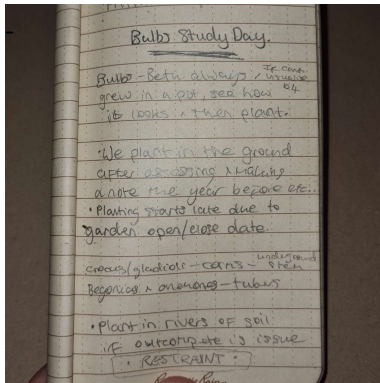 Bulbs Study Day.
Bulbs - Beth always / If cant visualise b4
grew in a pot, see how
it looks & then plant.
• We plant in the ground
after assessing & making
a note the year before etc...
• Planting starts late due to
garden open/close date.
crocus/gladioli - corms - underground stem
Begonias & anemones - tubers
• Plant in rivers of soil
if outcompete is issue
• RESTRAINT •